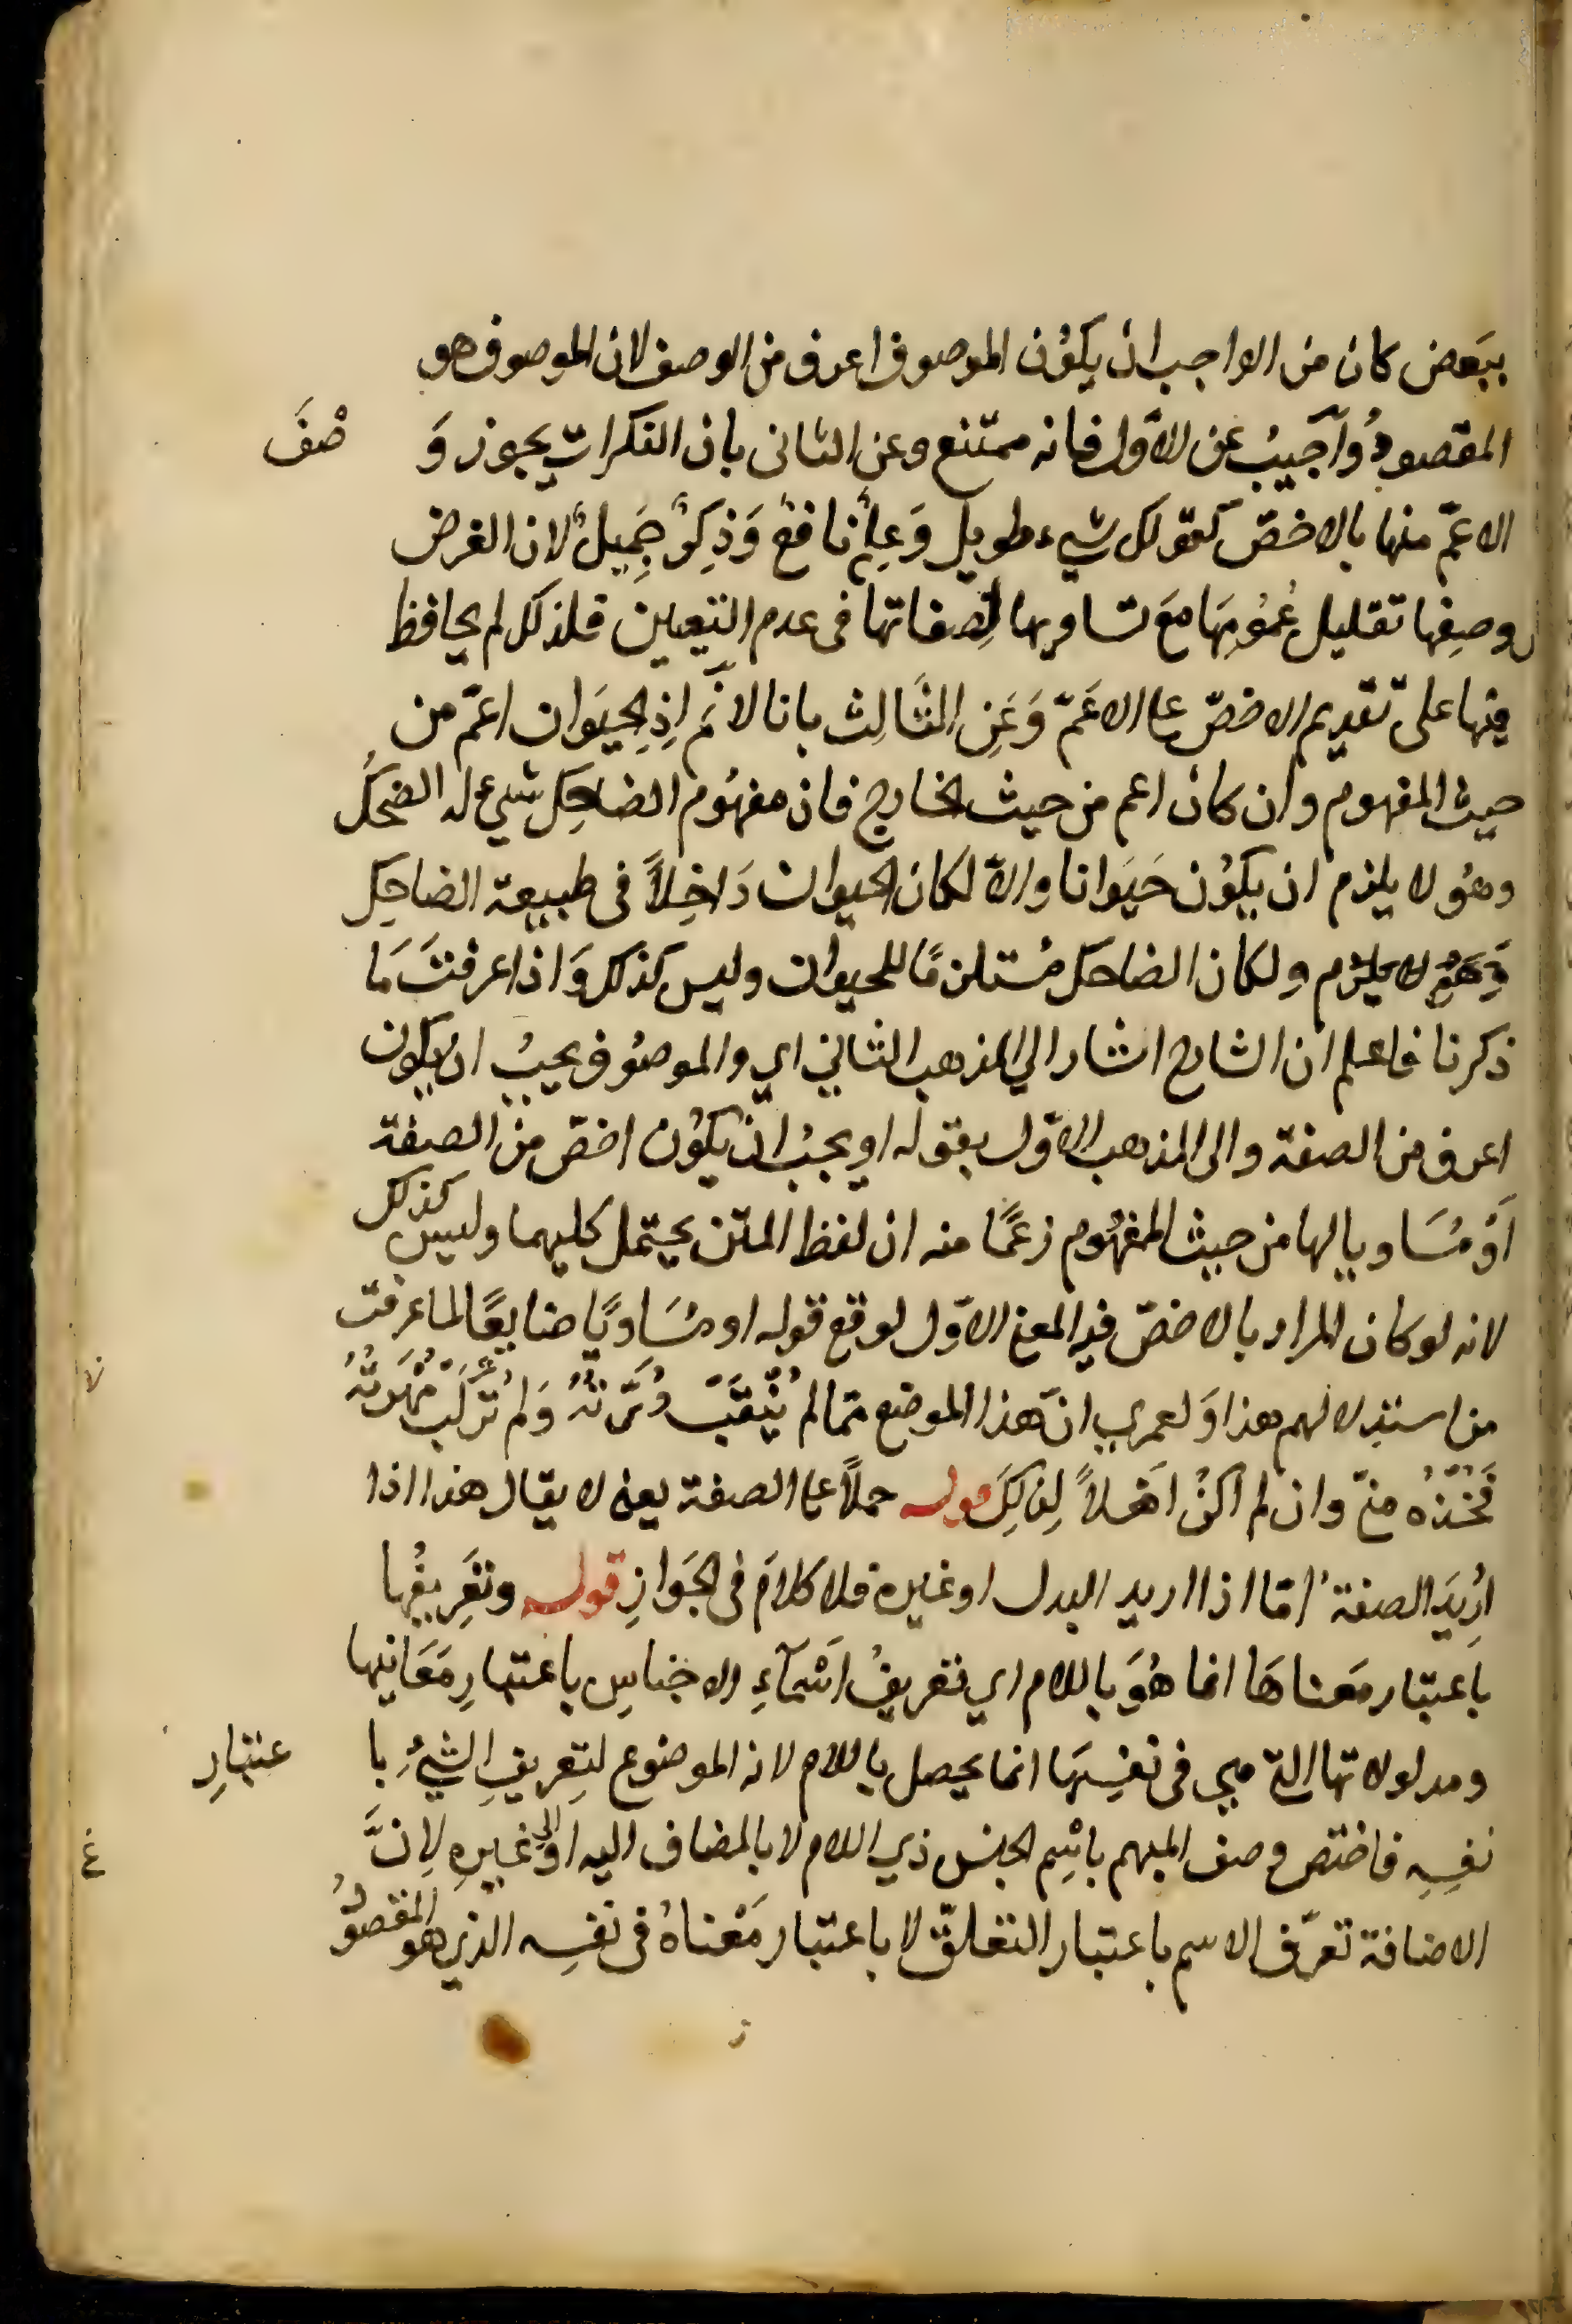 ببَعض كان من الواجب ان يكوُن الموصوف اعرف من الوصف لان الموصوف هو
المقصودُ وَاجيبُ عن الاَوّل فانه ممتنع وعن الثانى بان النكراتِ يجوز وَ صْفَ
الاعمّ منها بالاخصّ كقولك شيء طويل وَعِلمٌ نافعٌ وَذِكرٌ جَمِيلٌ لان الغرض
من وصفِها تقليل عُمُومِهَا مَعَ تساويها لِصفاتها فى عدم التعيين فلذلك لم يحافظ
فيها على تقديم الاخصّ على الاعَمّ وَعَنِ الثَالِث بانا لا نَم اِذِ الحيَوان اعمّ من
حيث المفهوم وان كان اعم من حيث الخارج فان مفهوُم الضاحِك شيء له الضحكُ
وهوُ لا يلزم ان يكوُن حَيَوانا والاّ لكان الحيوان دَاخِلاً فى طبيعة الضاحِك
ولكان الضاحك مُستلزمًا للحيوان وليس كذلك وَاذا عرفتَ مَا
ذكرنا فاعلم ان الشارح اشار الي المذهب الثاني اي والموصوُف يجبُ ان يكون
اعرف من الصفة والى المذهب الاوّل بقوله او يجبُ ان يكوُن اخصّ من الصفة
اَوْ مُسَاويا لها من حيث المفهوُم زعمًا منه ان لفظ المتن يحتمل كليهما وليس كذلك
لانه لو كان المراد بالاخصّ فيه المعنى الاوّل لوقع قوله او مُسَاويًا ضايعًا لما عرفت
من استدلالهم هذا وَلعمري انّ هذا الموضع ممّا لم يُثقَبْ دُرَّتهُ وَلم تُركَب مُهرَتهُ
فَخُذْهُ منّي وان لم اكنْ اهْلاً لِذلِكَ قوله حملاً على الصفة يعنى لا يقال هذا اذا
اُرِيدَ الصفة امّا اذا اريد البدل او غيره فلا كلامَ فى الجَوازِ قوله وتعَرِيفُها
باعتبار مَعناهَا انما هُوَ باللام اي تعريفُ اسْمَآءِ الاجناسِ باعتبارِ مَعَانيها
ومدلولاتها التي هي فى نفسِهَا انما يحصل باللام لانه الموضوع لتعِريفِ الشيْءِ با عتبارِ
نفسِهِ فاختص وصف المبهم باسْمِ الجنس ذي اللام لا بالمضاف اليه او الي غيرِهِ لِانَّ
الاضافة تعرّف الاسم باعتبار التعلقّ لا باعتبار مَعْناهُ فى نفسِه الذي هو المقصوُدُ